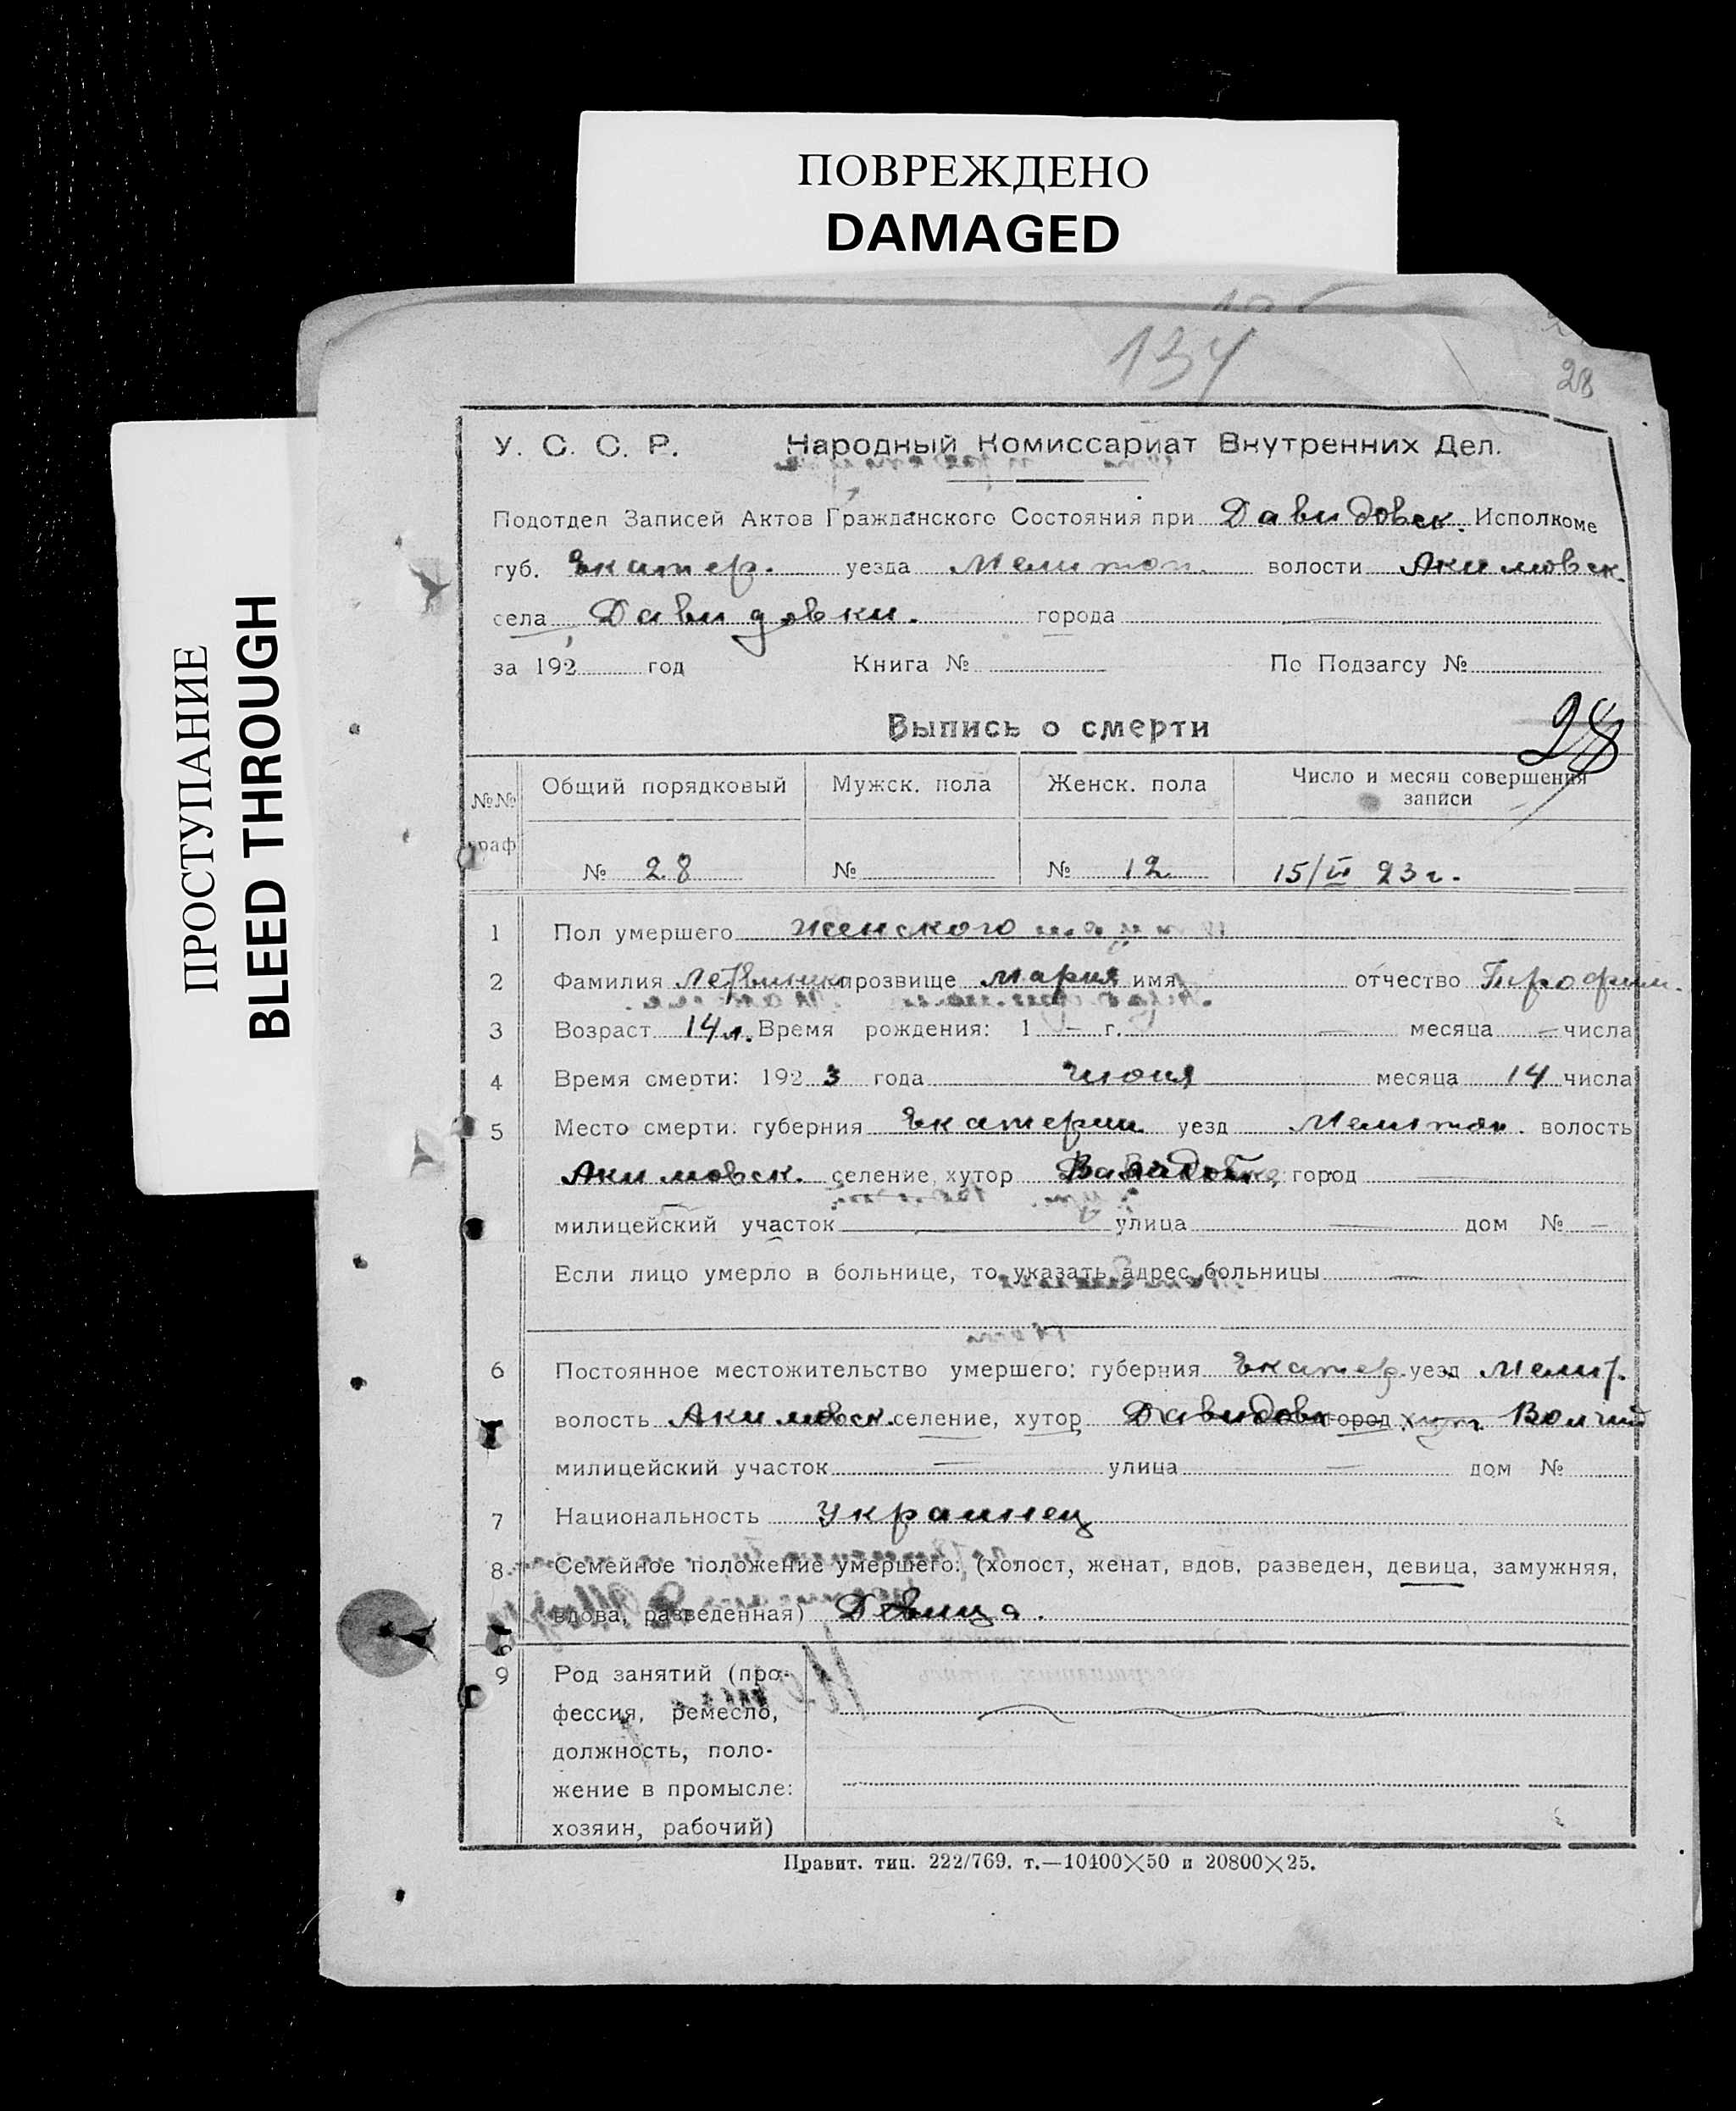 ПОВРЕЖДЕНО
DAMAGED
ПРОСТУПАНИЕ
BLEED THROUGH
134
28
У. С. С. Р. Народный Комиссариат Внутренних Дел.
Подотдел Записей Актов Гражданского Состояния при Давидовск. Исполкоме
губ. Екатер. уезда Мелитоп. волости Акимовск.
села Давидовки. города —
за 192 год Книга № По Подзагсу №
Выпись о смерти
28
№№ граф Общий порядковый Мужск. пола Женск. пола Число и месяц совершения записи
№ 28 № № 12 15/VI 23 г.
1 Пол умершего женского
2 Фамилия прозвище Мария имя отчество Трофим.
3 Возраст 14 л. Время рождения: 1 — г. — месяца — числа
4 Время смерти: 192 3 года июня месяца 14 числа
5 Место смерти: губерния Екатерин. уезд Мелитоп. волость
Акимовск. селение, хутор город —
милицейский участок — улица — дом № —
Если лицо умерло в больнице, то указать адрес больницы —
6 Постоянное местожительство умершего: губерния Екатер. уезд Мелит.
волость Акимовск. селение, хутор Давидовк город хут.
милицейский участок — улица — дом №
7 Национальность Украинец
8 Семейное положение умершего: (холост, женат, вдов, разведен, девица, замужняя,
вдова, разведенная) Девица.
9 Род занятий (про-
фессия, ремесло,
должность, поло-
жение в промысле:
хозяин, рабочий)
Правит. тип. 222/769. т.—10400×50 и 20800×25.